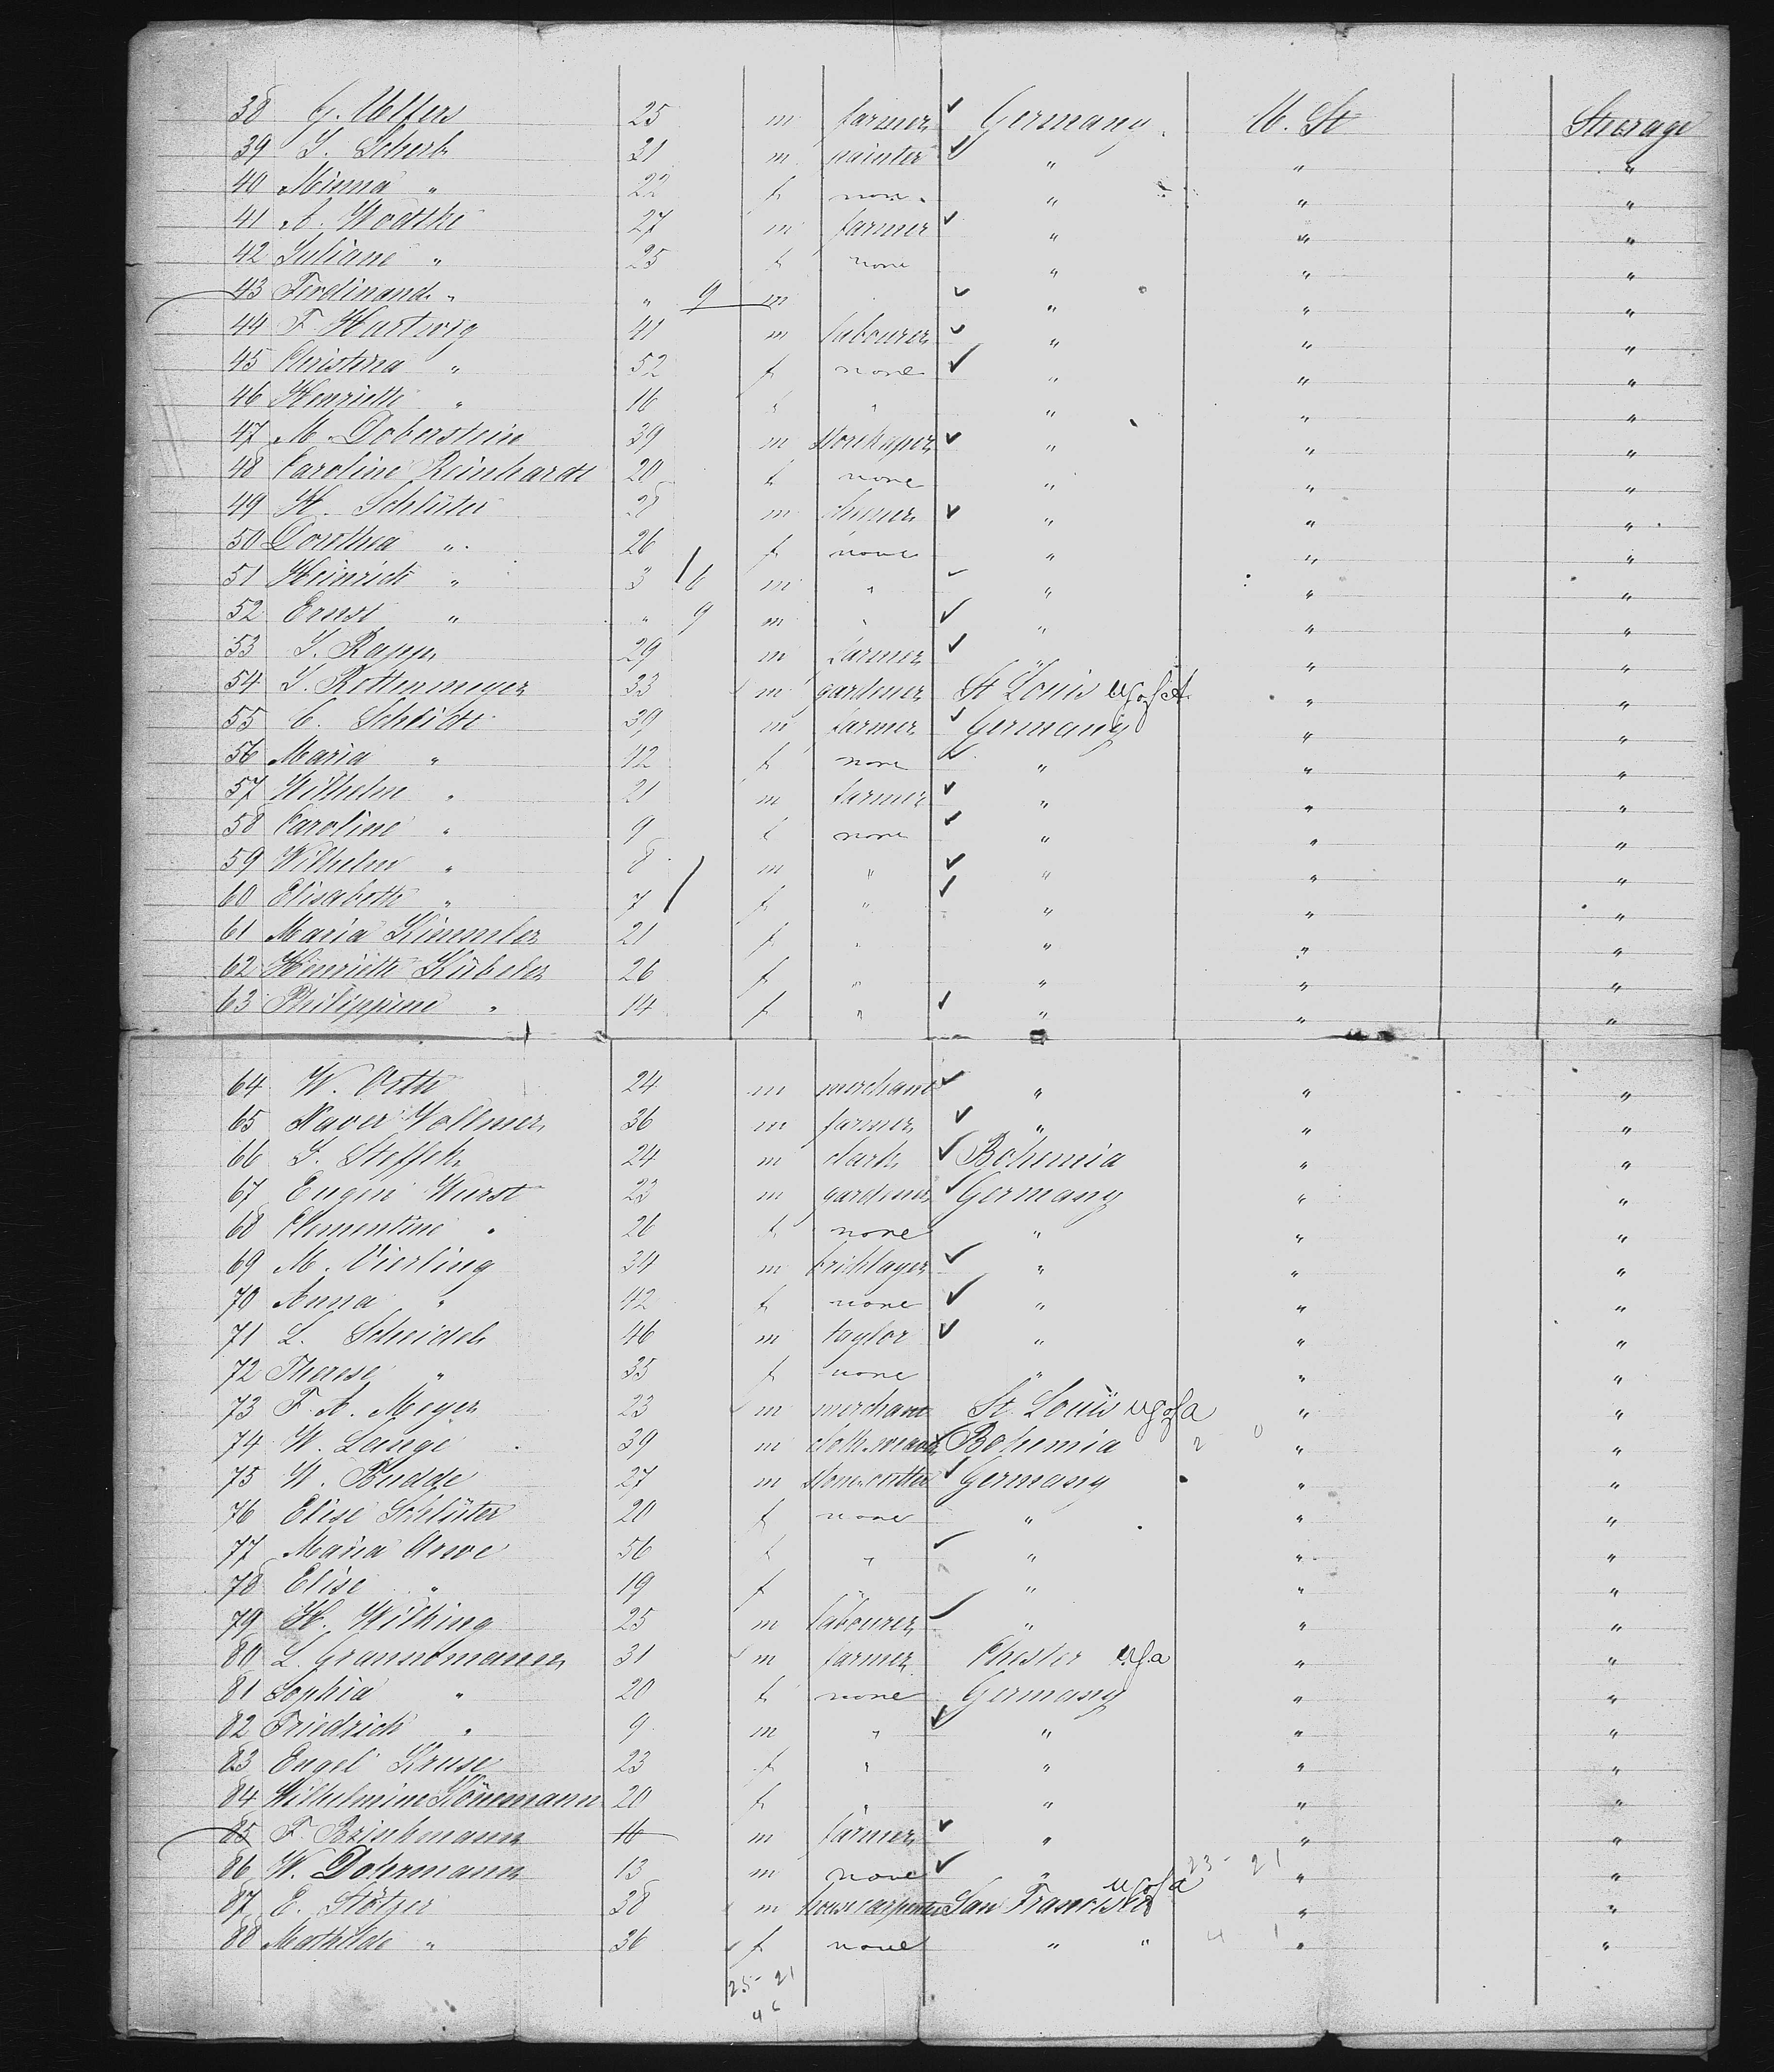 38 G. Ulfers 25 m farmer ✓ Germany U. St Sterage
39 J. Scherb 31 m painter ✓ " " "
40 Minna " 22 f none " " "
41 A. Woithe 27 m farmer ✓ " " "
42 Juliane " 25 f none " " "
43 Ferdinand " " 9 m ✓ " " "
44 F. Hartwig 41 m labourer ✓ " " "
45 Christina " 52 f none ✓ " " "
46 Henriette " 16 f " " " "
47 M. Doberstein 39 m storekeper ✓ " " "
48 Caroline Reinhardt 20 f none " " "
49 H. Schlüter 28 m ✓ " " "
50 Dorothea " 26 f none " " "
51 Heinrich " 3 6 m " ✓ " " "
52 Ernst " " 9 m " ✓ " " "
53 J. Rapp 29 m farmer ✓ " " "
54 J. Rottenmeyer 33 m gardener St Louis " "
55 C. Schlidt 39 m farmer ✓ Germany " "
56 Maria " 42 f none ✓ " " "
57 Wilhelm " 21 m farmer ✓ " " "
58 Caroline " 9 f none ✓ " " "
59 Wilhelm " 8 m " ✓ " " "
60 Elisabeth " 7 f " ✓ " " "
61 Maria Kimmler 21 f " " " "
62 Henriette Kübeler 26 f " " " "
63 Philippine " 14 f " ✓ " " "
64 W. Orth 24 m merchant ✓ " " "
65 Xaver Vollmer 36 m farmer ✓ " " "
66 J. Steffek 24 m clark ✓ Bohemia " "
67 Eugin Wurst 23 m gardener ✓ Germany " "
68 Clementine " 26 f none " " "
69 M. Vierling 34 m bricklayer ✓ " " "
70 Anna " 42 f none ✓ " " "
71 L. Scheidel 46 m taylor ✓ " " "
72 Therese " 35 f none " " "
73 F. A. Meyer 23 m merchant St. Louis " "
74 W. Lange 39 m cloth weaver ✓ Bohemia " "
75 W. Budde 27 m stonecutter ✓ Germany " "
76 Elise Schlüter 20 f none " " "
77 Maria Arwe 56 f " ✓ " " "
78 Elise " 19 f " " " "
79 H. Wilking 25 m labourer ✓ " " "
80 L. Grannemann 31 m farmer Chester " "
81 Sophia " 20 f none Germany " "
82 Friedrich " 9 m " ✓ " " "
83 Engel Kruse 23 f " " " "
84 Wilhelmine Könemann 20 f " " " "
85 F. Brinkmann 16 m farmer ✓ " " "
86 W. Dohrmann 13 m none ✓ " 23-21 " "
87 E. Stötzer 38 m housecarpenter San Francisco " "
88 Mathilde " 36 f none " " 4 1 " "
25-21
46